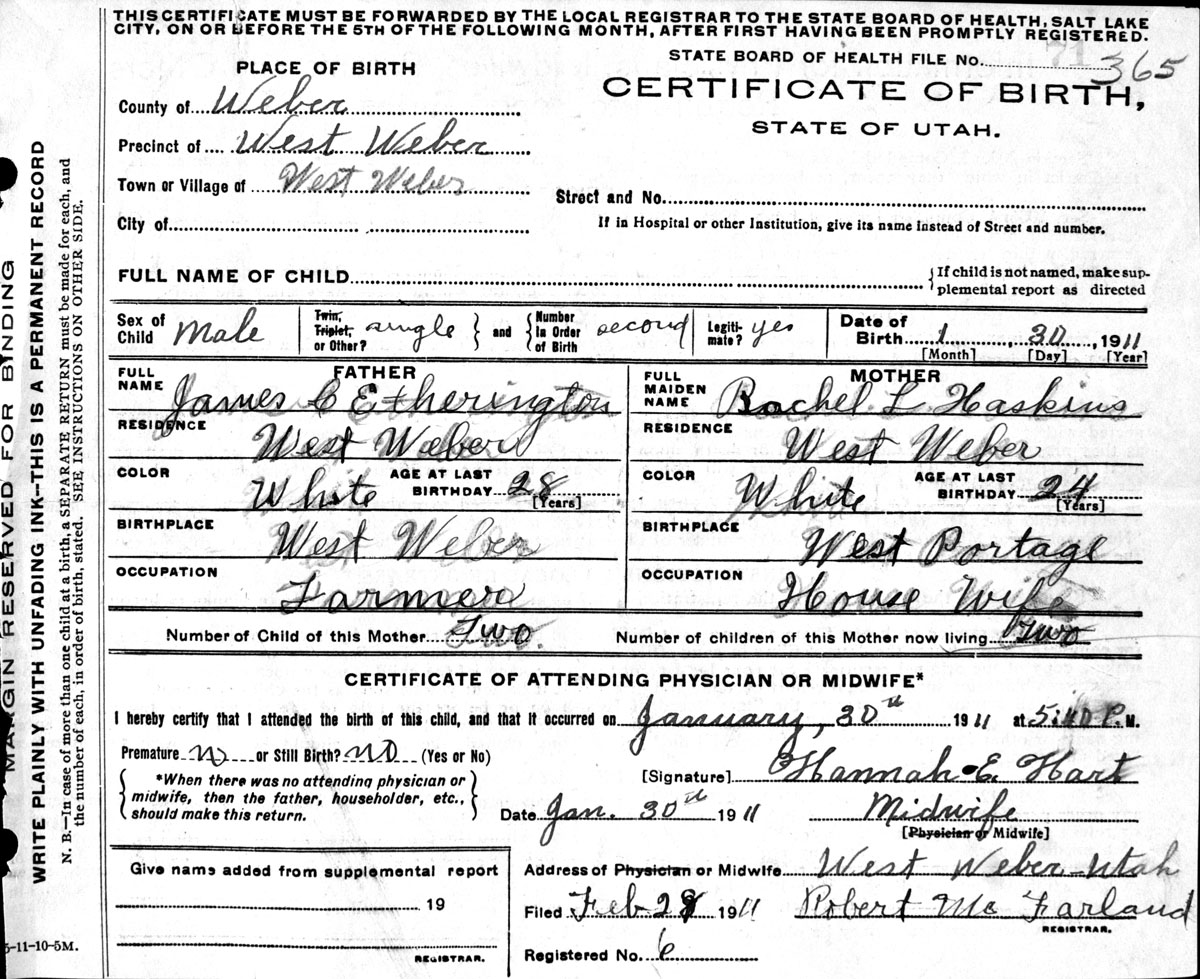 THIS CERTIFICATE MUST BE FORWARDED BY THE LOCAL REGISTRAR TO THE STATE BOARD OF HEALTH, SALT LAKE
CITY, ON OR BEFORE THE 5TH OF THE FOLLOWING MONTH, AFTER FIRST HAVING BEEN PROMPTLY REGISTERED.
STATE BOARD OF HEALTH FILE No. 71 365
PLACE OF BIRTH
CERTIFICATE OF BIRTH,
STATE OF UTAH.
County of Weber
Precinct of West Weber
Town or Village of West Weber
Street and No.
City of
If in Hospital or other Institution, give its name instead of Street and number.
FULL NAME OF CHILD
{If child is not named, make sup-
plemental report as directed
Sex of Child Male
Twin, Triplet, or Other? single } and { Number in Order of Birth second
Legiti-mate? yes
Date of Birth 1 30, 1911
[Month] [Day] [Year]
FATHER
FULL NAME James C Etherington
RESIDENCE West Weber
COLOR White AGE AT LAST BIRTHDAY 28 [Years]
BIRTHPLACE West Weber
OCCUPATION Farmer
MOTHER
FULL MAIDEN NAME Rachel L Haskins
RESIDENCE West Weber
COLOR White AGE AT LAST BIRTHDAY 24 [Years]
BIRTHPLACE West Portage
OCCUPATION House Wife
Number of Child of this Mother Two. Number of children of this Mother now living Two
CERTIFICATE OF ATTENDING PHYSICIAN OR MIDWIFE*
I hereby certify that I attended the birth of this child, and that it occurred on January, 30th 1911 at 5:40 P. M.
Premature no or Still Birth? no (Yes or No)
*When there was no attending physician or
midwife, then the father, householder, etc.,
should make this return.
[Signature] Hannah E. Hart
Date Jan. 30th 1911 Midwife
[Physician or Midwife]
Give name added from supplemental report
19
REGISTRAR.
Address of Physician or Midwife West Weber Utah
Filed Feb 28 1911 Robert Mc Farland
REGISTRAR.
Registered No. 6
5-11-10-5M.
MARGIN RESERVED FOR BINDING
WRITE PLAINLY WITH UNFADING INK—THIS IS A PERMANENT RECORD
N. B.—In case of more than one child at a birth, a SEPARATE RETURN must be made for each, and
the number of each, in order of birth, stated. SEE INSTRUCTIONS ON OTHER SIDE.